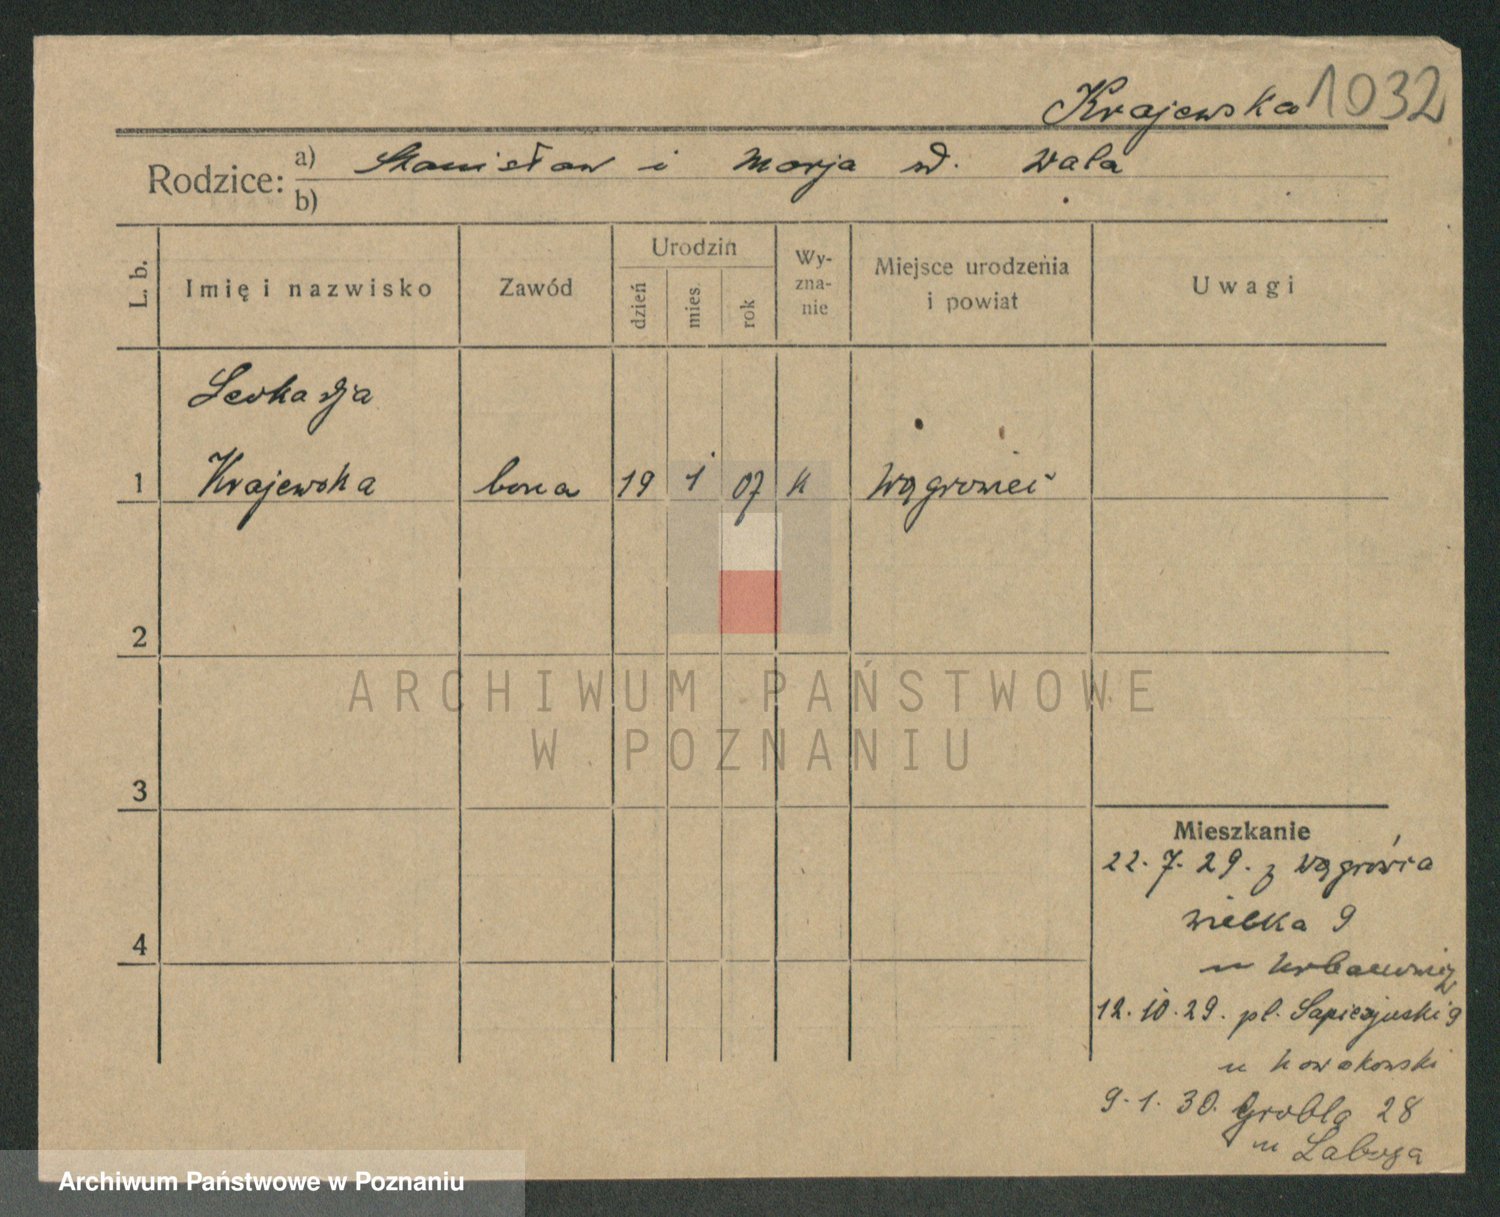 Krajewska 1032
Rodzice: a) Stanisław i Marja d. Wala
b)
L. b. Imię i nazwisko Zawód Urodzin dzień mies. rok Wy-zna-nie Miejsce urodzenia i powiat Uwagi
Leokadja
1 Krajewska bona 19 1 07 k Wągrowiec
2
ARCHIWUM PAŃSTWOWE
W POZNANIU
3
Mieszkanie
22. 7. 29. z Wągrówca
Wielka 9
4
u Urbanowicz
12. 10. 29. pl. Sapieżyński 9
u Nowakowski
9. 1. 30. Grobla 28
u
Archiwum Państwowe w Poznaniu